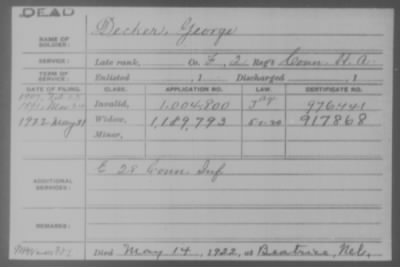 DEAD
NAME OF SOLDIER: Decker, George
SERVICE: Late rank, Co. F, 2 Reg't Conn. H. A.
TERM OF SERVICE: Enlisted , 1 Discharged , 1
DATE OF FILING. CLASS. APPLICATION NO. LAW. CERTIFICATE NO.
Invalid, 1,004,800 976441
1922 May 31 Widow, 1,189,793 917868
Minor,
ADDITIONAL SERVICES: E 28 Conn. Inf
REMARKS:
Died May 14, 1922, at Beatrice, Neb.